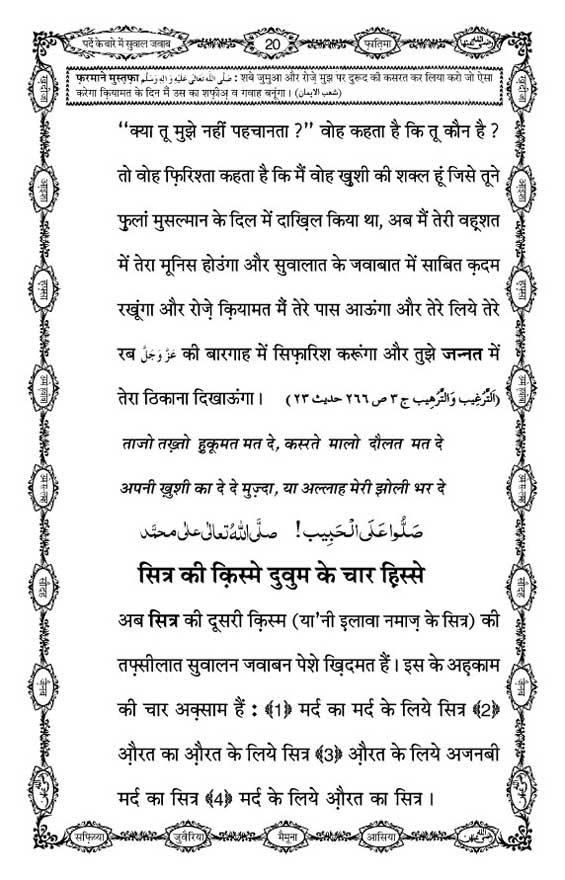 पर्दे के बारे में सुवाल जवाब
20
फ़ातिमा
फ़रमाने मुस्तफ़ा صَلَّى اللهُ تَعَالٰى عَلَيْهِ وَاٰلِهٖ وَسَلَّم : शबे जुमुआ और रोज़े मुझ पर दुरूद की कसरत कर लिया करो जो ऐसा
करेगा क़ियामत के दिन मैं उस का शफ़ीअ़ व गवाह बनूंगा। (شعب الايمان)
“क्या तू मुझे नहीं पहचानता ?” वोह कहता है कि तू कौन है ?
तो वोह फ़िरिश्ता कहता है कि मैं वोह ख़ुशी की शक्ल हूं जिसे तूने
फुलां मुसल्मान के दिल में दाख़िल किया था, अब मैं तेरी वह़्शत
में तेरा मूनिस होउंगा और सुवालात के जवाबात में साबित क़दम
रखूंगा और रोज़े क़ियामत मैं तेरे पास आऊंगा और तेरे लिये तेरे
रब عَزَّوَجَلَّ की बारगाह में सिफ़ारिश करूंगा और तुझे जन्नत में
तेरा ठिकाना दिखाऊंगा। (اَلتَّرغِيب وَالتَّرهِيب ج ٣ ص ٢٦٦ حديث ٢٣)
ताजो तख़्तो हुकूमत मत दे, कस्रते मालो दौलत मत दे
अपनी ख़ुशी का दे दे मुज़्दा, या अल्लाह मेरी झोली भर दे
صَلُّوا عَلَى الْحَبِيب! صلَّى اللهُ تعالٰى على محمَّد
सित्र की क़िस्मे दुवुम के चार ह़िस्से
अब सित्र की दूसरी क़िस्म (या'नी इलावा नमाज़ के सित्र) की
तफ़्सीलात सुवालन जवाबन पेशे ख़िदमत हैं। इस के अह़काम
की चार अक्साम हैं : ﴾1﴿ मर्द का मर्द के लिये सित्र ﴾2﴿
औ़रत का औ़रत के लिये सित्र ﴾3﴿ औ़रत के लिये अजनबी
मर्द का सित्र ﴾4﴿ मर्द के लिये औ़रत का सित्र।
सफ़िय्या
जुवैरिया
मैमूना
आसिया